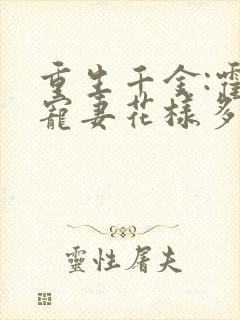 重生千金:霍
寵妻花樣多
靈性屠夫